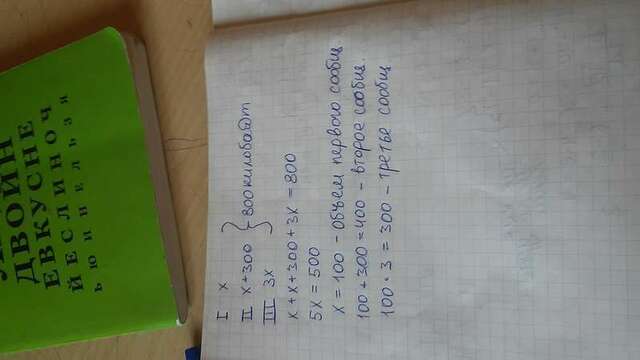 ДВОЙН
ЕВКУСНЕ
ЙЕСЛИНОЧ
ЬЮИПЕЛЬЗЯ
I x
II x+300 } 800 килобайт
III 3x
x + x + 300 + 3x = 800
5x = 500
x = 100 - объем первого сообщ.
100 + 300 = 400 - второе сообщ.
100 · 3 = 300 - третье сообщ